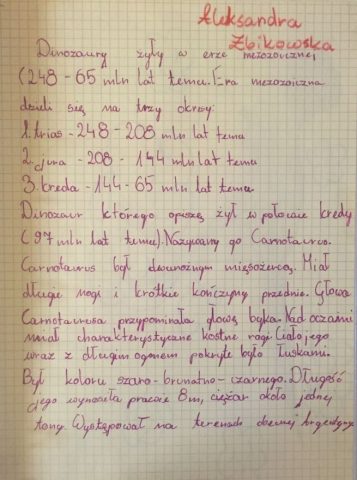 Aleksandra
Żbikowska
Dinozaury żyły w erze mezozoicznej
(248 - 65 mln lat temu. Era mezozoiczna
dzieli się na trzy okresy:
1. trias - 248 - 208 mln lat temu
2. jura - 208 - 144 mln lat temu
3. kreda - 144 - 65 mln lat temu
Dinozaur którego opiszę żył w połowie kredy
(97 mln lat temu). Nazywamy go Carnotaurus.
Carnotaurus był dwunożnym mięsożercą. Miał
długie nogi i krótkie kończyny przednie. Głowa
Carnotaurusa przypominała głowę byka. Nad oczami
miał charakterystyczne kostne rogi. Ciało jego
wraz z długim ogonem pokryte było łuskami.
Był koloru szaro - brunatno - czarnego. Długość
jego wynosiła prawie 8m, ciężar około jednej
tony. Występował na terenach obecnej Argentyny.